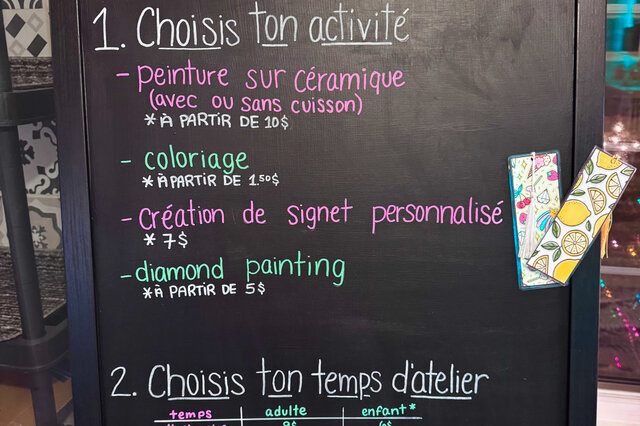 1. Choisis ton activité
- peinture sur céramique
(avec ou sans cuisson)
* À PARTIR DE 10$
- coloriage
* À PARTIR DE 1.50$
- création de signet personnalisé
* 7$
- diamond painting
* À PARTIR DE 5$
2. Choisis ton temps d'atelier
temps adulte enfant*